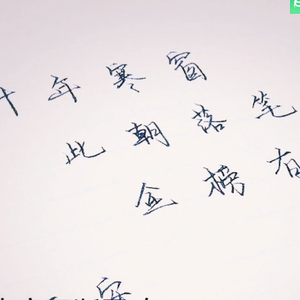 十年寒窗
此朝落笔
金榜有